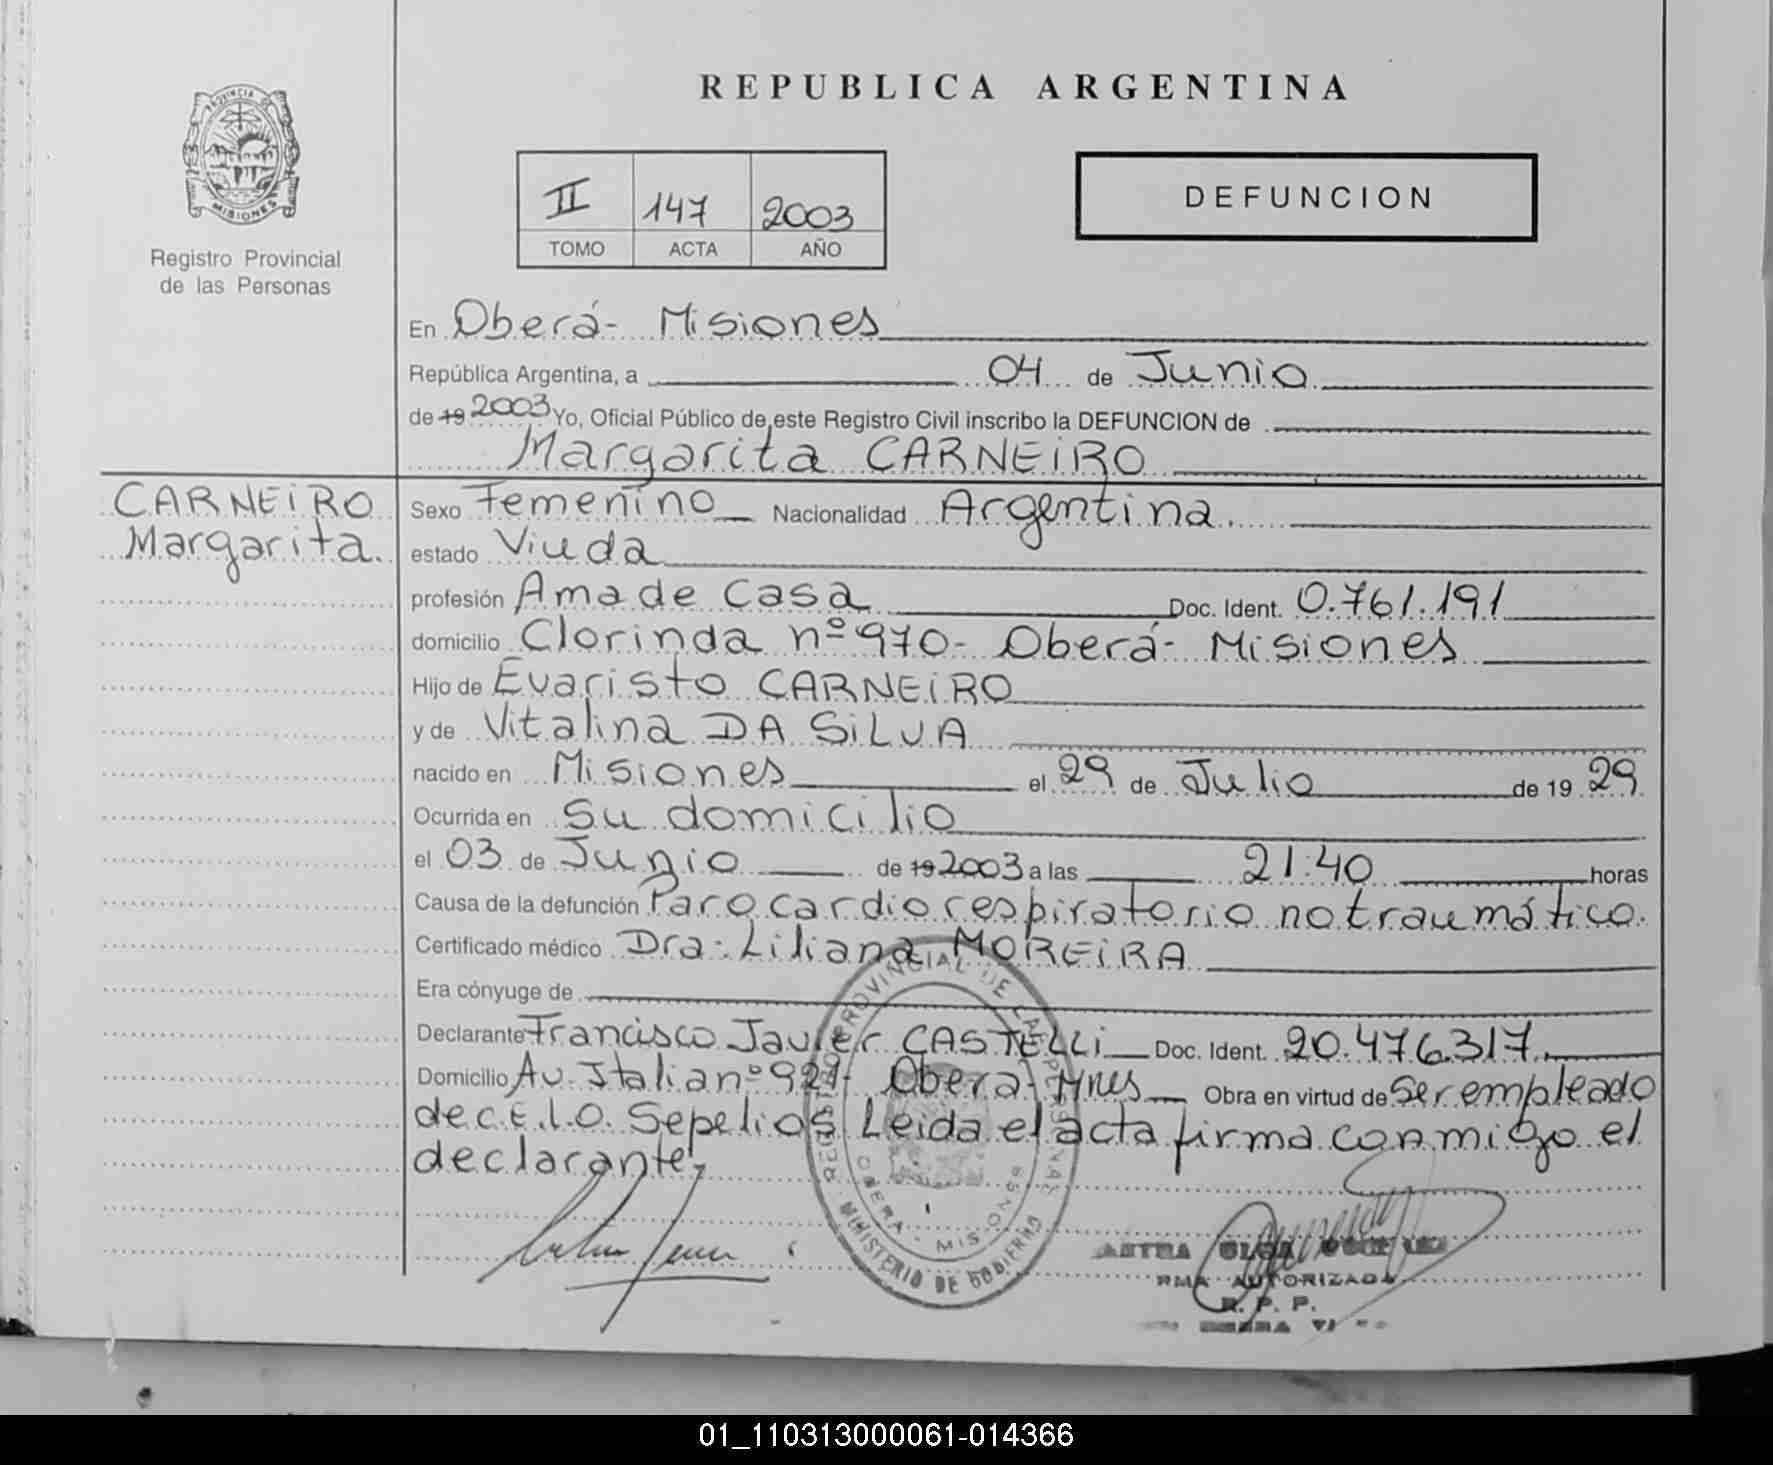 REPUBLICA ARGENTINA
PROVINCIA DE
MISIONES
Registro Provincial
de las Personas
II 147 2003
TOMO ACTA AÑO
DEFUNCION
En Oberá- Misiones
República Argentina, a 04 de Junio
de 19 2003 Yo, Oficial Público de este Registro Civil inscribo la DEFUNCION de
Margarita CARNEIRO
CARNEIRO
Margarita.
Sexo Femenino Nacionalidad Argentina.
estado Viuda
profesión Ama de Casa Doc. Ident. 0.761.191
domicilio Clorinda nº 970- Oberá- Misiones
Hijo de Evaristo CARNEIRO
y de Vitalina DA SILVA
nacido en Misiones el 29 de Julio de 19 29
Ocurrida en su domicilio
el 03 de Junio de 19 2003 a las 21:40 horas
Causa de la defunción Paro cardio respiratorio no traumático.
Certificado médico Dra: Liliana MOREIRA
Era cónyuge de
Declarante Francisco Javier CASTELLI Doc. Ident. 20.476.317
Domicilio Av. Italia nº 921- Oberá- Mnes Obra en virtud de ser empleado
de C.E.L.O. Sepelios Leida el acta firma conmigo el
declarante
REGISTRO PROVINCIAL DE LAS PERSONAS
OBERA - MISIONES
MINISTERIO DE GOBIERNO
OLGA
AUTORIZADA
R. P. P.
01_110313000061-014366